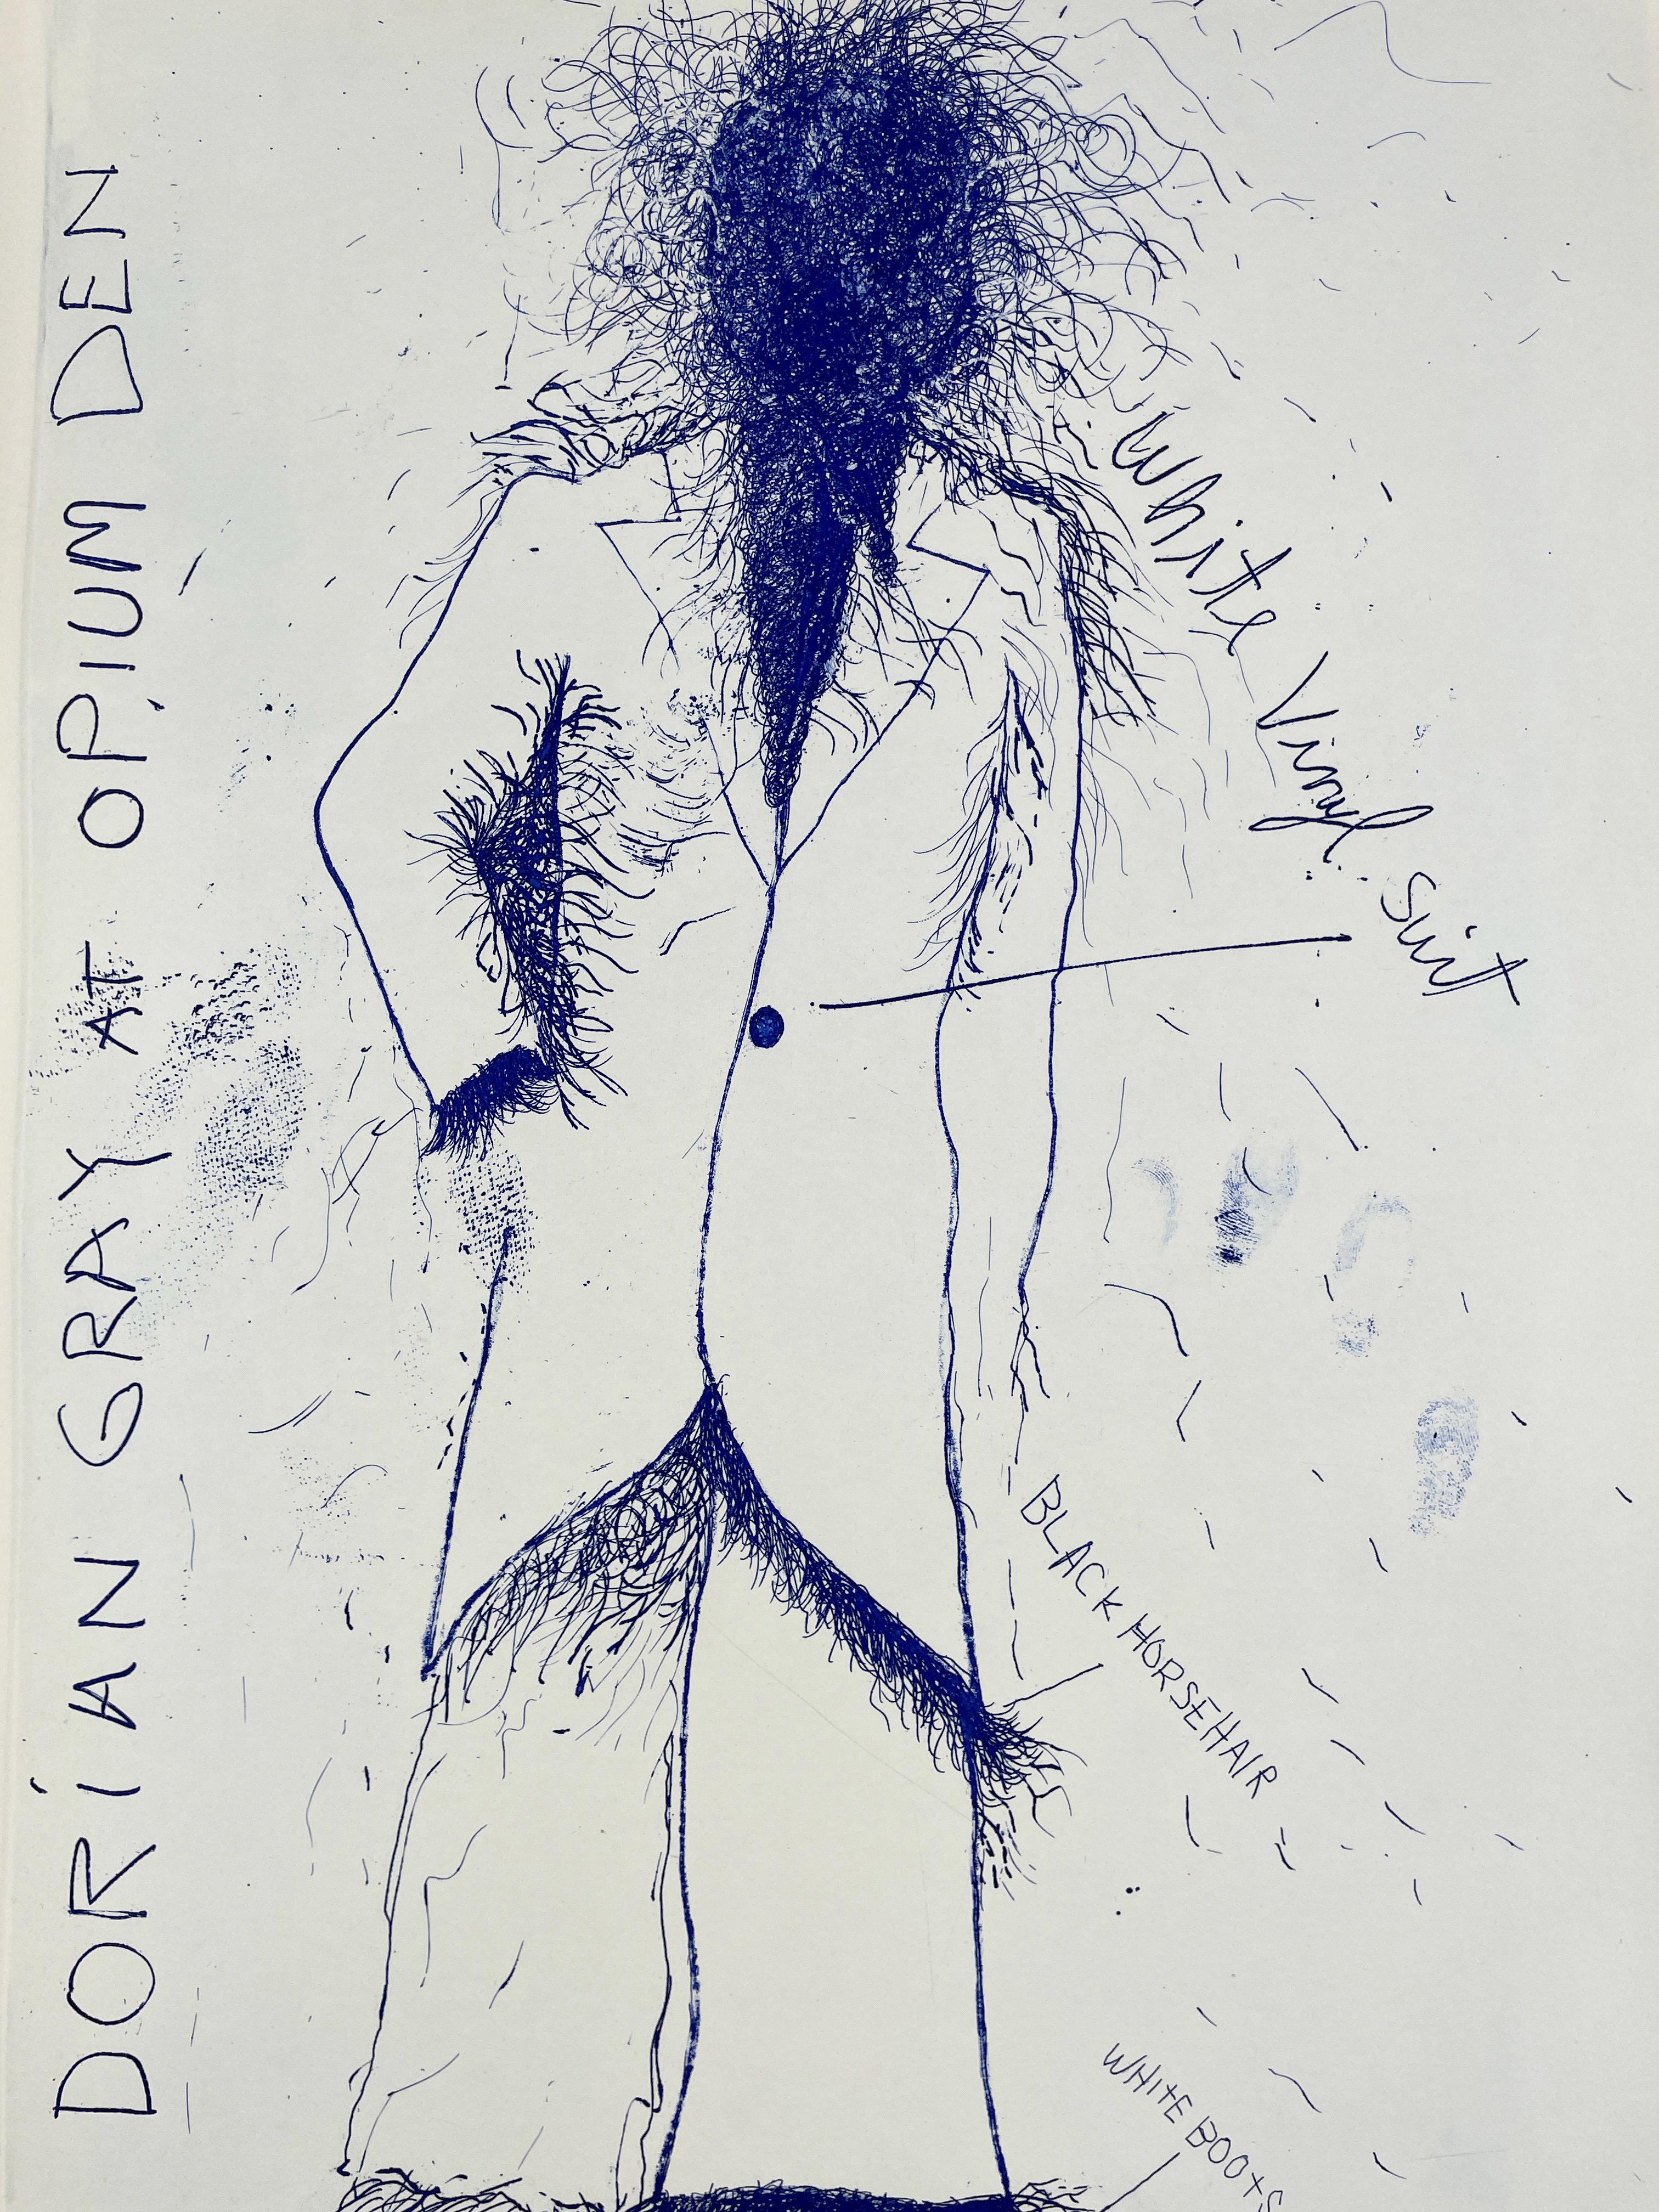 DORIAN GRAY AT OPIUM DEN
White Vinyl Suit
BLACK HORSEHAIR
WHITE BOOTS